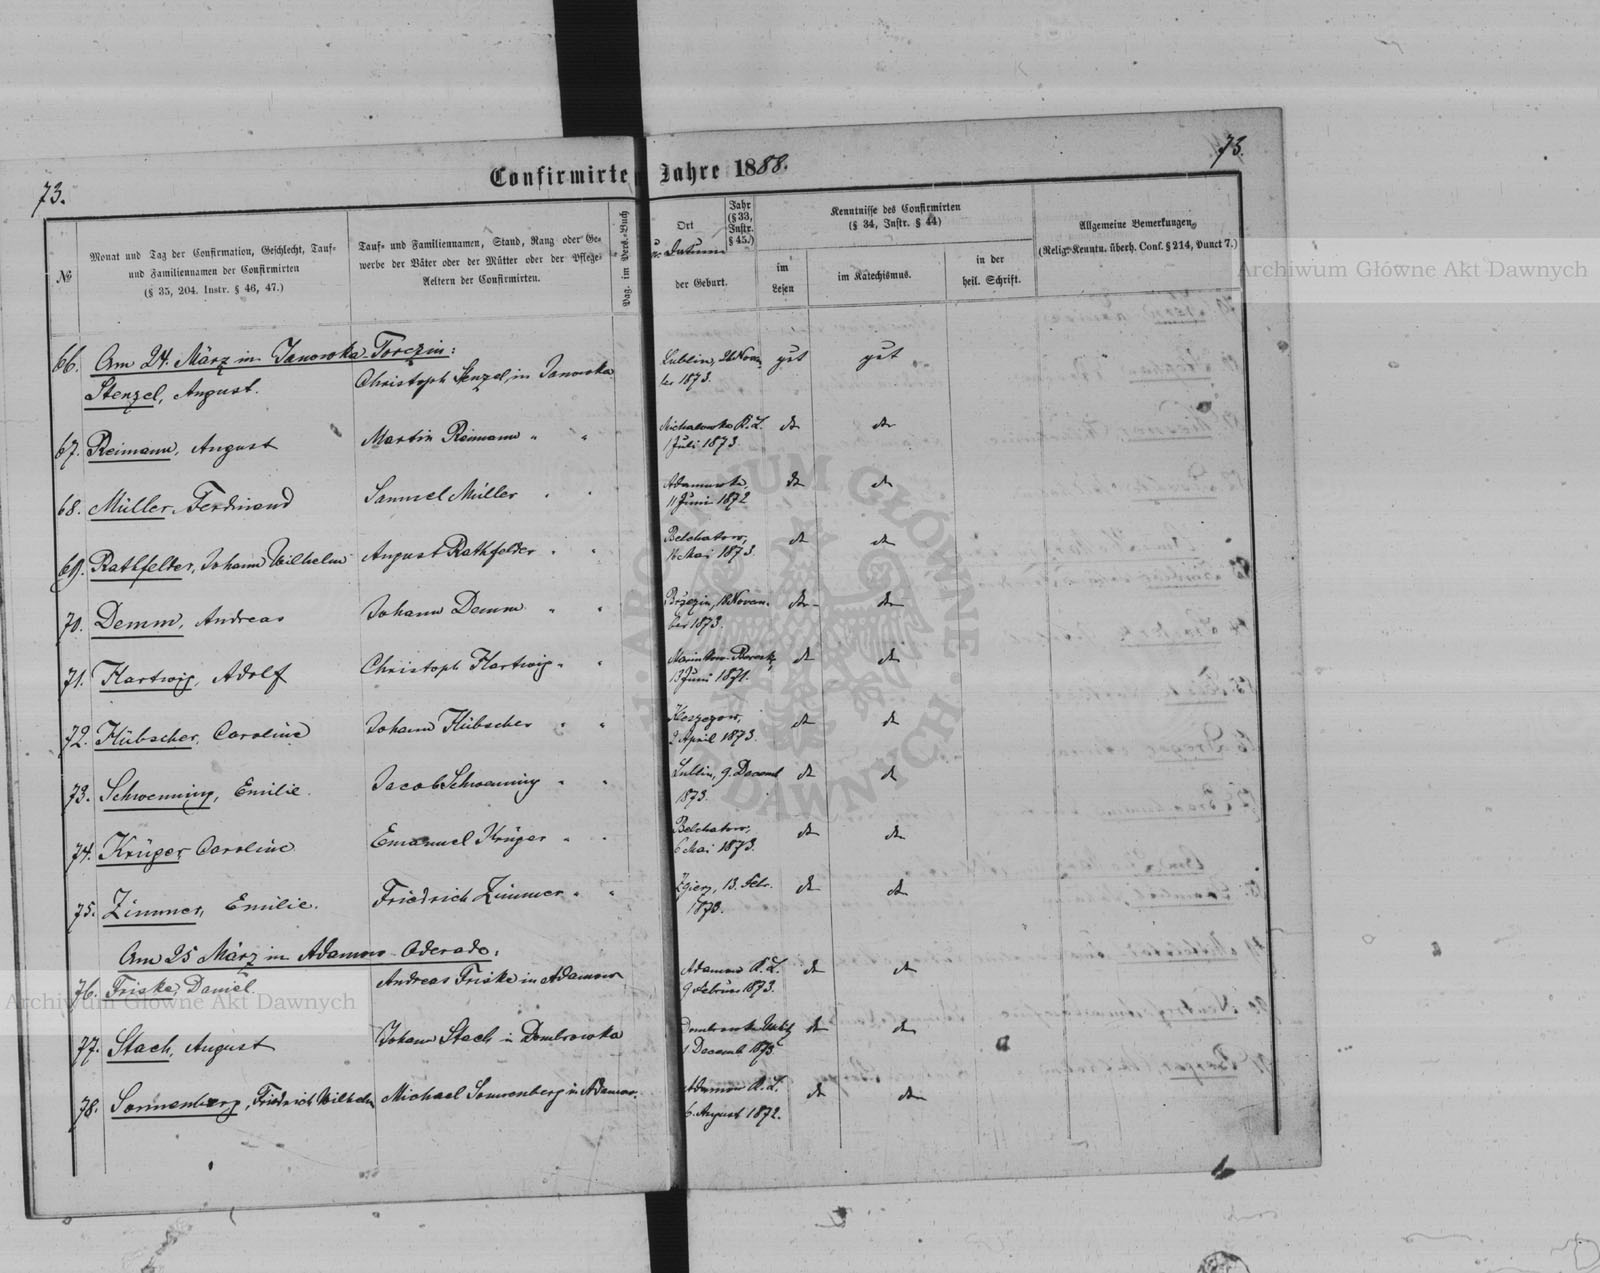 73.
73.
Confirmirte Jahre 1888.
№
Monat und Tag der Confirmation, Geschlecht, Tauf-
und Familiennamen der Confirmirten
(§ 35, 204. Instr. § 46, 47.)
Tauf- und Familiennamen, Stand, Rang oder Ge-
werbe der Väter oder der Mütter oder der Pflege-
Aeltern der Confirmirten.
Pag. im Pers.-Buch
Ort
u. Datum
der Geburt.
Jahr
(§ 33,
Instr.
§ 45.)
Kenntnisse des Confirmirten
(§ 34, Instr. § 44)
im
Lesen
im Katechismus.
in der
heil. Schrift.
Allgemeine Bemerkungen
(Relig. Kenntn. überh. Conf. § 214, Punct 7.)
Archiwum Główne Akt Dawnych
66. Am 24. März in Janowka Torczin:
Stenzel, August. Christoph Stenzel, in Janowka
Lublin, Novem-
ber 1873. gut gut
67. Reimann, August Martin Reimann " "
Michalowka K. L.
1 Juli 1873. dt dt
68. Müller, Ferdinand Samuel Müller " "
Adamowka,
11 Juni 1872 dt dt
69. Rathfelder, Johann Wilhelm August Rathfelder " "
Belchatow,
16 Mai 1873. dt dt
70. Demm, Andreas Johann Demm " "
Brzezin, 18 Novem-
ber 1873. dt dt
71. Hartwig, Adolf Christoph Hartwig " "
13 Juni 1871. dt dt
72. Hübscher, Caroline Johann Hübscher " "
Kleszczow,
2 April 1873. dt dt
73. Schwenning, Emilie. Jacob Schwenning " "
Lublin, 9. Decemb
1873. dt dt
74. Krüger, Caroline Emanuel Krüger " "
Belchatow,
6 Mai 1873. dt dt
75. Zimmer, Emilie. Friedrich Zimmer " "
Zgierz, 13. Febr.
1873. dt dt
Am 25 März in Adamow-Oderado:
76. Friske, Daniel Andreas Friske in Adamow
Adamow K. L.
9 Februar 1873. dt dt
77. Stach, August Johann Stach in Dombrowka
Dombrowka
1 Decemb 1873 dt dt
78. Sonnenberg, Friedrich Wilhelm Michael Sonnenberg in Adamow.
Adamow K. L.
6. August 1872. dt dt
ARCHIWUM GŁÓWNE AKT DAWNYCH
Archiwum Główne Akt Dawnych